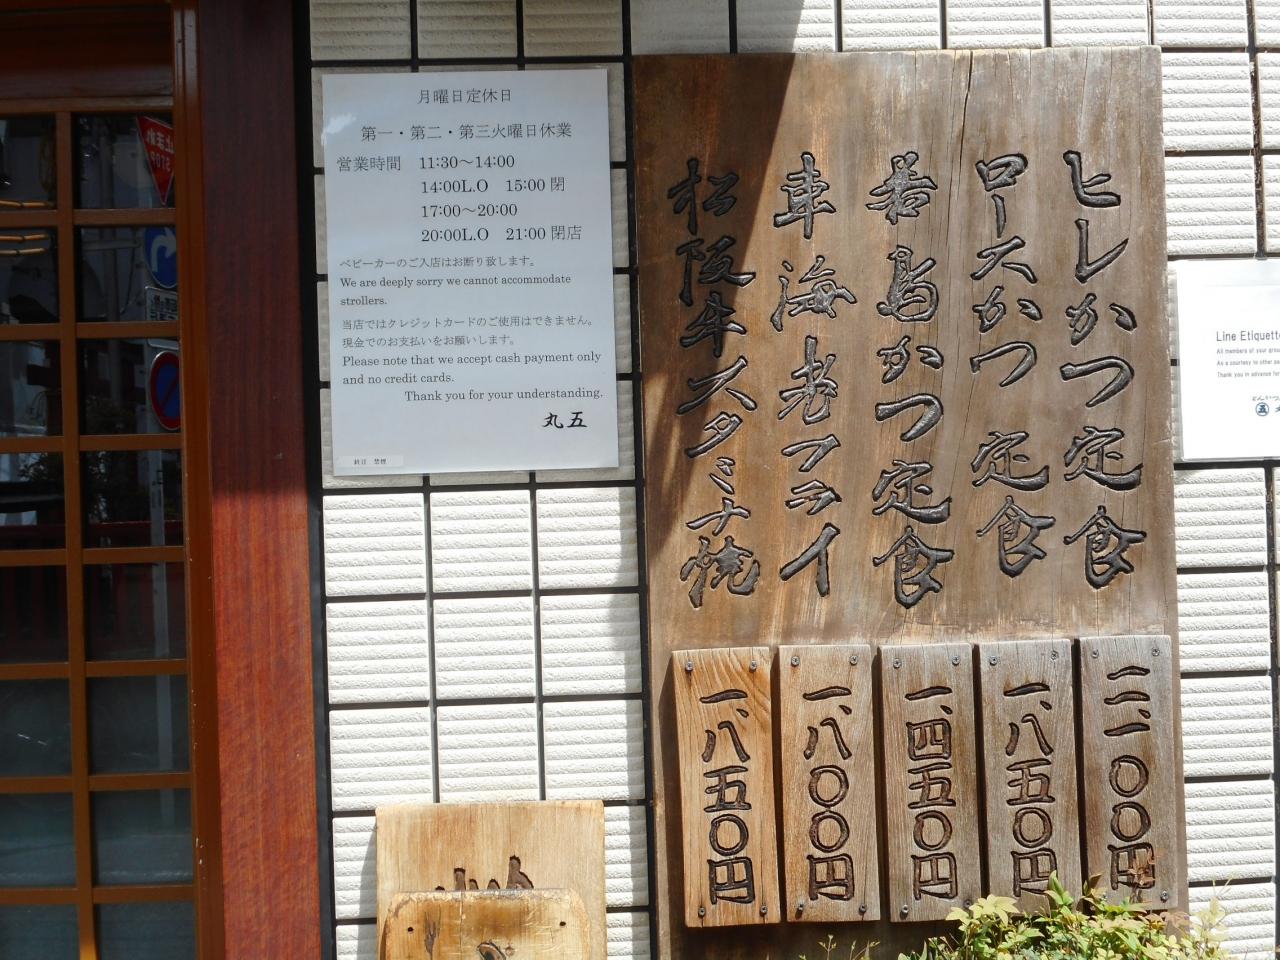 月曜日定休日
第一・第二・第三火曜日休業
営業時間 11:30～14:00
14:00L.O 15:00 閉
17:00～20:00
20:00L.O 21:00 閉店
ベビーカーのご入店はお断り致します。
We are deeply sorry we cannot accommodate
strollers.
当店ではクレジットカードのご使用はできません。
現金でのお支払いをお願いします。
Please note that we accept cash payment only
and no credit cards.
Thank you for your understanding.
丸五
終日 禁煙
ヒレかつ定食
二、一〇〇円
ロースかつ定食
一、八五〇円
若鳥かつ定食
一、四五〇円
車海老フライ
一、八〇〇円
松阪牛スタミナ焼
一、八五〇円
Line Etiquette
All members of your grou
As a courtesy to other pa
Thank you in advance for
とんかつ
止まれ
STOP